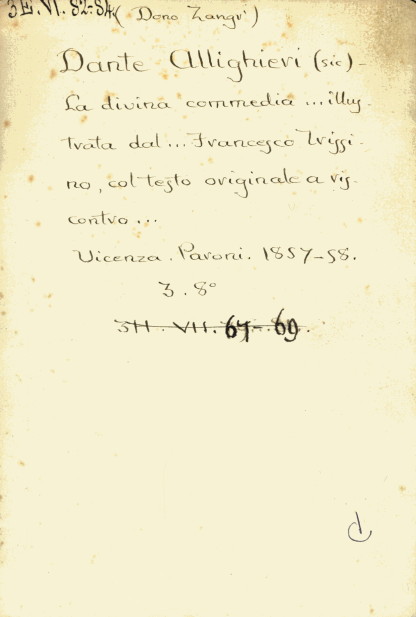 3E.VI.82-84 (Dono Zangri)
Dante Allighieri (sic) -
La divina commedia ... illus-
trata dal ... Francesco Trissi-
no, col testo originale a ris-
contro ...
Vicenza. Paroni. 1857-58.
3. 8°
3H. VII. 67-69.